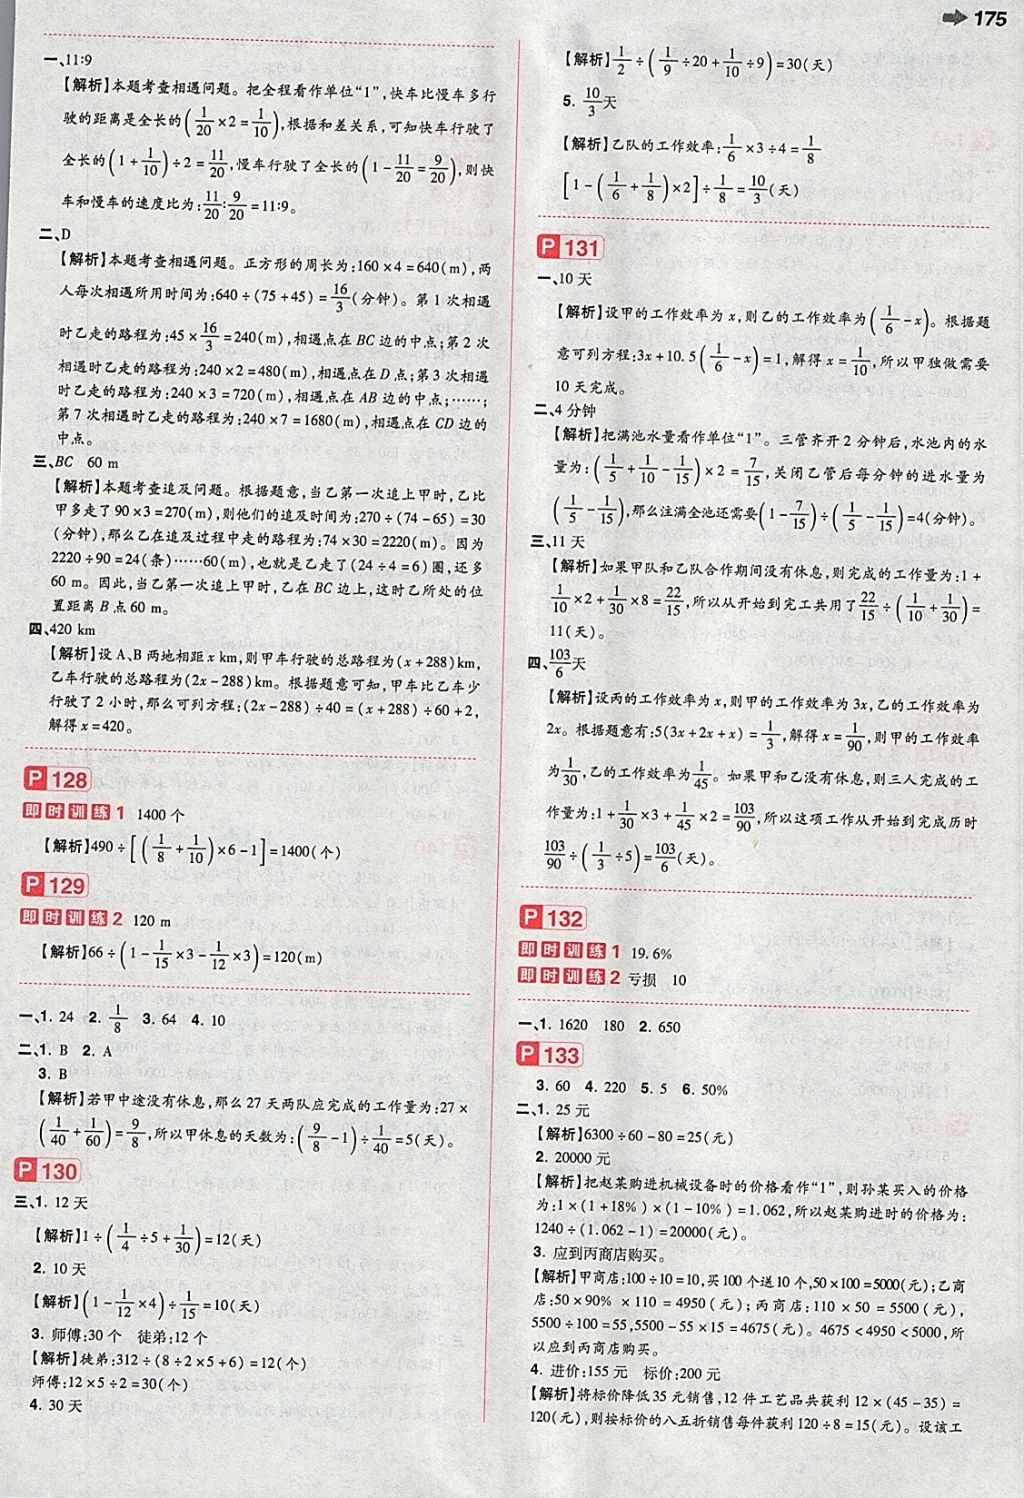 175
一、11:9
【解析】本题考查相遇问题。把全程看作单位“1”,快车比慢车多行
驶的距离是全长的(1/20×2=1/10),根据和差关系,可知快车行驶了
全长的(1+1/10)÷2=11/20,慢车行驶了全长的(1-11/20=9/20),则
快车和慢车的速度比为:11/20:9/20=11:9。
二、D
【解析】本题考查相遇问题。正方形的周长为:160×4=640(m),两
人每次相遇所用时间为:640÷(75+45)=16/3(分钟)。第1次相遇
时乙走的路程为:45×16/3=240(m),相遇点在BC边的中点;第2次
相遇时乙走的路程为:240×2=480(m),相遇点在D点;第3次相遇
时乙走的路程为:240×3=720(m),相遇点在AB边的中点;……;
第7次相遇时乙走的路程为:240×7=1680(m),相遇点在CD边的
中点。
三、BC 60 m
【解析】本题考查追及问题。根据题意,当乙第一次追上甲时,乙比
甲多走了90×3=270(m),则他们的追及时间为:270÷(74-65)=30
(分钟),那么乙在追及过程中走的路程为:74×30=2220(m)。因为
2220÷90=24(条)……60(m),也就是乙走了(24÷4=6)圈,还多
60 m。因此,当乙第一次追上甲时,乙在BC边上,这时乙所处的位
置距离B点60 m。
四、420 km
【解析】设A、B两地相距x km,则甲车行驶的总路程为(x+288)km,
乙车行驶的总路程为(2x-288)km。根据题意可知,甲车比乙车少
行驶了2小时,那么可列方程:(2x-288)÷40=(x+288)÷60+2,
解得x=420。
P 128
即时训练1 1400个
【解析】490÷[(1/8+1/10)×6-1]=1400(个)
P 129
即时训练2 120 m
【解析】66÷(1-1/15×3-1/12×3)=120(m)
一、1. 24 2. 1/8 3. 64 4. 10
二、1. B 2. A
3. B
【解析】若甲中途没有休息,那么27天两队应完成的工作量为:27×
(1/40+1/60)=9/8,所以甲休息的天数为:(9/8-1)÷1/40=5(天)。
P 130
三、1. 12天
【解析】1÷(1/4÷5+1/30)=12(天)
2. 10天
【解析】(1-1/12×4)÷1/15=10(天)
3. 师傅:30个 徒弟:12个
【解析】徒弟:312÷(8÷2×5+6)=12(个)
师傅:12×5÷2=30(个)
4. 30天
【解析】1/2÷(1/9÷20+1/10÷9)=30(天)
5. 10/3天
【解析】乙队的工作效率:1/6×3÷4=1/8
[1-(1/6+1/8)×2]÷1/8=10/3(天)
P 131
一、10天
【解析】设甲的工作效率为x,则乙的工作效率为(1/6-x)。根据题
意可列方程:3x+10.5(1/6-x)=1,解得x=1/10,所以甲独做需要
10天完成。
二、4分钟
【解析】把满池水量看作单位“1”。三管齐开2分钟后,水池内的水
量为:(1/5+1/10-1/15)×2=7/15,关闭乙管后每分钟的进水量为
(1/5-1/15),那么注满全池还需要(1-7/15)÷(1/5-1/15)=4(分钟)。
三、11天
【解析】如果甲队和乙队合作期间没有休息,则完成的工作量为:1+
1/10×2+1/30×8=22/15,所以从开始到完工共用了22/15÷(1/10+1/30)=
11(天)。
四、103/6天
【解析】设丙的工作效率为x,则甲的工作效率为3x,乙的工作效率为
2x。根据题意有:5(3x+2x+x)=1/3,解得x=1/90,则甲的工作效率
为1/30,乙的工作效率为1/45。如果甲和乙没有休息,则三人完成的工
作量为:1+1/30×3+1/45×2=103/90,所以这项工作从开始到完成历时
103/90÷(1/3÷5)=103/6(天)。
P 132
即时训练1 19.6%
即时训练2 亏损 10
一、1. 1620 180 2. 650
P 133
3. 60 4. 220 5. 5 6. 50%
二、1. 25元
【解析】6300÷60-80=25(元)
2. 20000元
【解析】把赵某购进机械设备时的价格看作“1”,则孙某买入的价格
为:1×(1+18%)×(1-10%)=1.062,所以赵某购进时的价格为:
1240÷(1.062-1)=20000(元)。
3. 应到丙商店购买。
【解析】甲商店:100÷10=10,买100个送10个,50×100=5000(元);乙商
店:50×90%×110=4950(元);丙商店:110×50=5500(元),
5500÷100=55,5500-55×15=4675(元)。4675<4950<5000,所
以应到丙商店购买。
4. 进价:155元 标价:200元
【解析】将标价降低35元销售,12件工艺品共获利12×(45-35)=
120(元),则按标价的八五折销售每件获利120÷8=15(元)。设该工